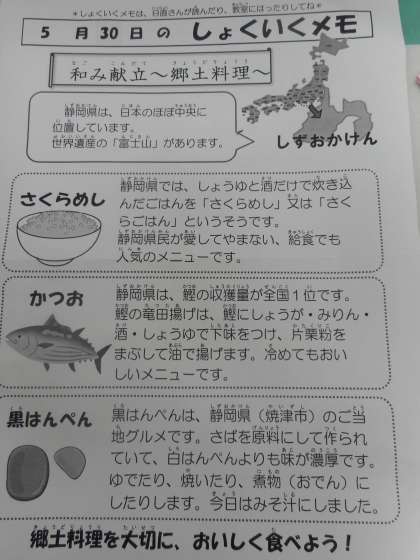 ＊しょくいくメモは、日直さんが読んだり、教室にはったりしてね＊
5 月30日の しょくいくメモ
和み献立～郷土料理～
静岡県は、日本のほぼ中央に
位置しています。
世界遺産の「富士山」があります。
しずおかけん
さくらめし
静岡県では、しょうゆと酒だけで炊き込
んだごはんを「さくらめし」又は「さく
らごはん」というそうです。
静岡県民が愛してやまない、給食でも
人気のメニューです。
かつお
静岡県は、鰹の収獲量が全国１位です。
鰹の竜田揚げは、鰹にしょうが・みりん・
酒・しょうゆで下味をつけ、片栗粉を
まぶして油で揚げます。冷めてもおい
しいメニューです。
黒はんぺん
黒はんぺんは、静岡県（焼津市）のご当
地グルメです。さばを原料にして作られ
ていて、白はんぺんよりも味が濃厚です。
ゆでたり、焼いたり、煮物（おでん）に
したりします。今日はみそ汁にしました。
郷土料理を大切に、おいしく食べよう！